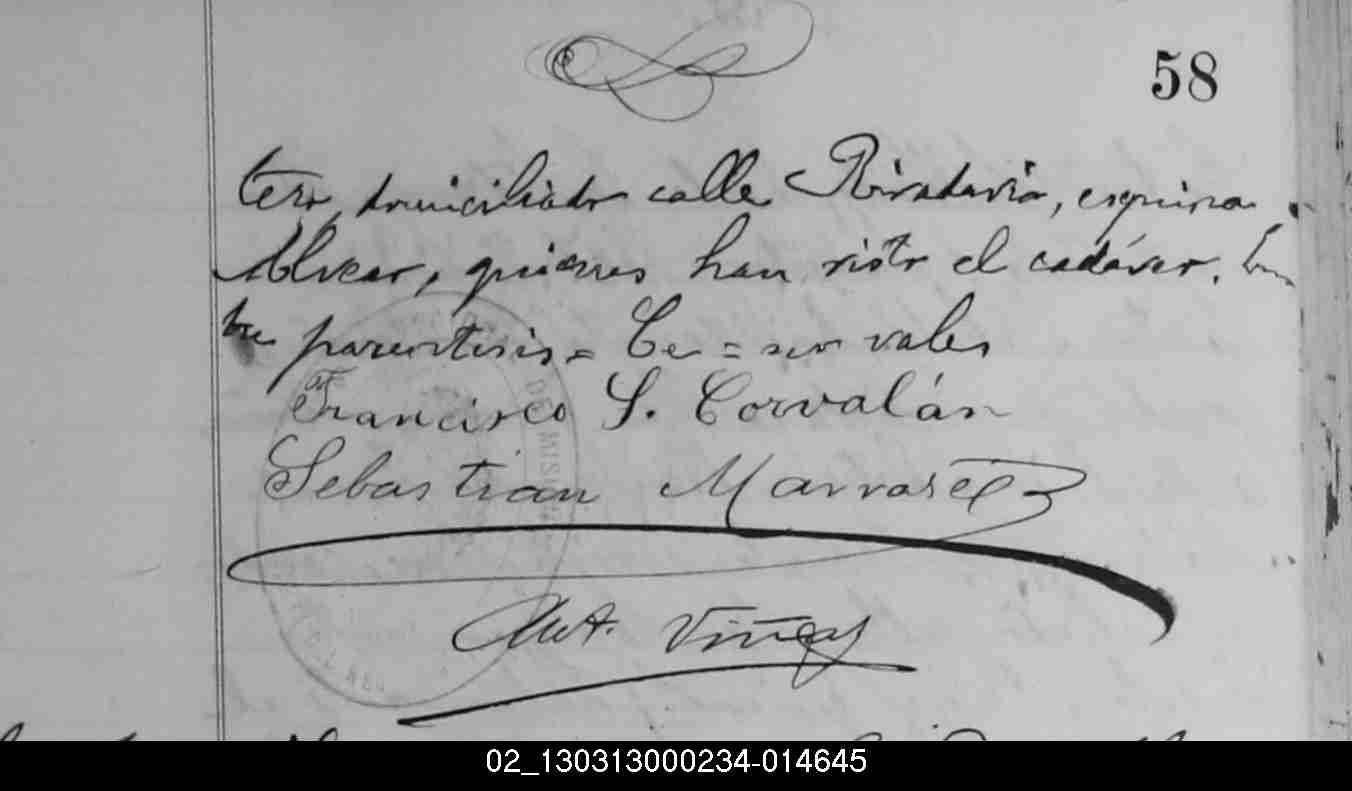 58
tero, domiciliado calle Rivadavia, esquina
Alvear, quienes han visto el cadáver. En
tre parentesis = Ce = no vales
Francisco S. Corvalán
Sebastian
Ant. Viñas
DE MISI
02_130313000234-014645